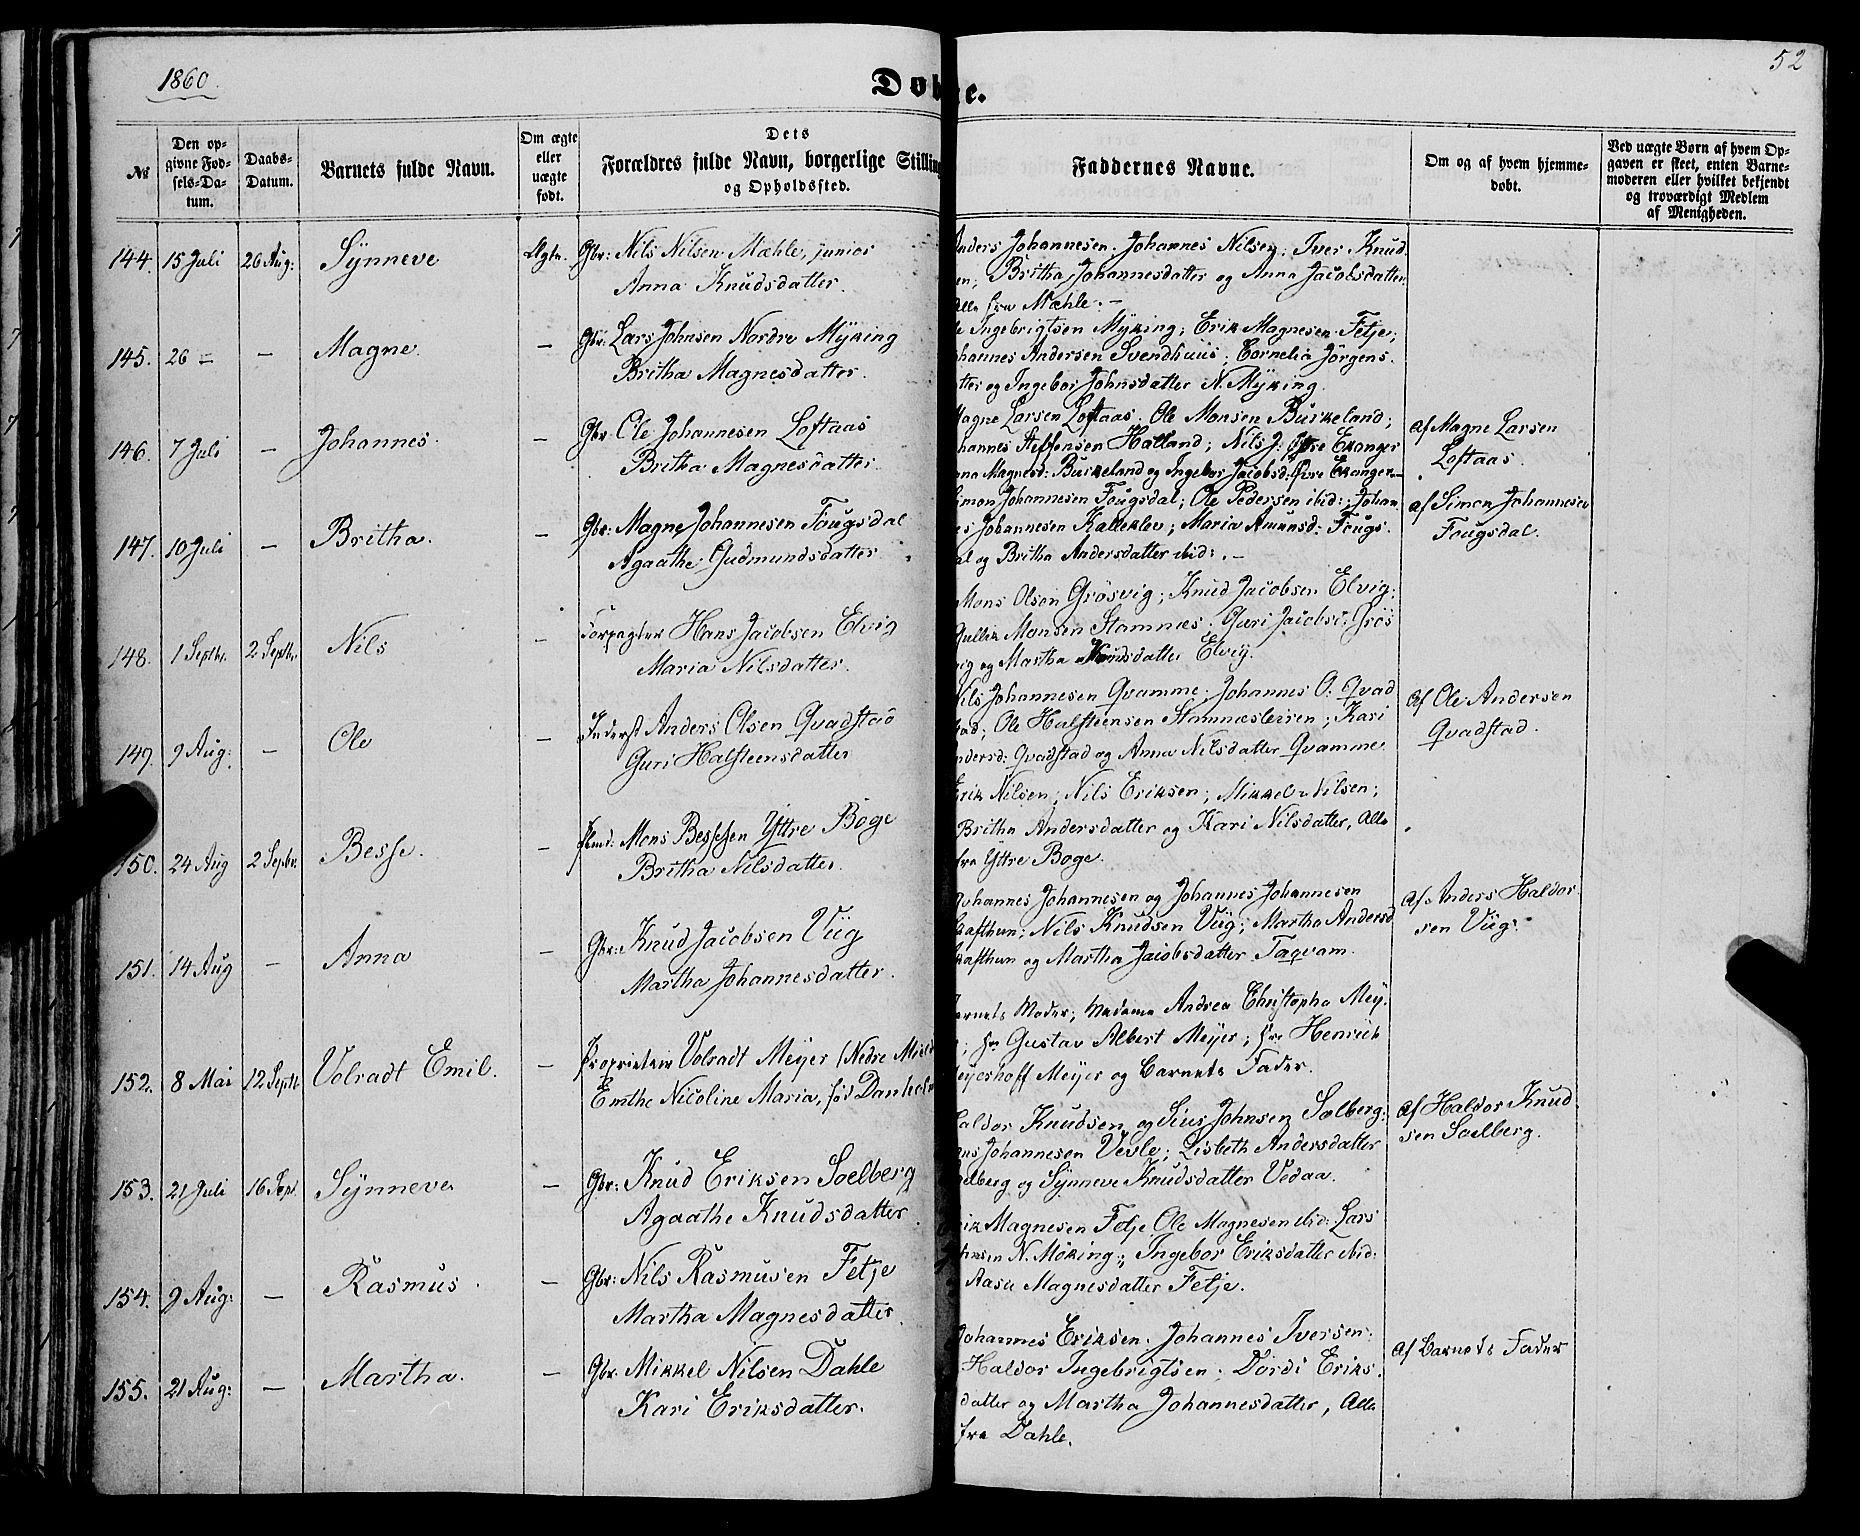 1860.
52
Døbte.
№
Den op-
givne Fød-
sels-Da-
tum.
Daabs-
Datum.
Barnets fulde Navn.
Om ægte
eller
uægte
født.
Dets
Forældres fulde Navn, borgerlige Stilling
og Opholdssted.
Faddernes Navne.
Om og af hvem hjemme-
døbt.
Ved uægte Børn af hvem Op-
gaven er skeet, enten Barne-
moderen eller hvilket bekjendt
og troværdigt Medlem
af Menigheden.
144. 15 Juli 26 Aug: Synneve Ægte. Gbr: Nils Nilsen Mæhle, junior
Anna Knudsdatter.
Anders Johannesen; Johannes Nilsen; Iver Knud
en; Britha Johannesdatter og Anna Jacobsdatter
alle fra Mæhle. –
145. 26 – – Magne. – Gbr: Lars Johnsen Nordre Myking
Britha Magnesdatter.
e Ingebrigtsen Myking; Erik Magnesen Fetje;
hannes Andersen Svendhuus; Cornelia Jörgens.
tter og Ingebor Johnsdatter N. Myking.
146. 7 Juli – Johannes. – Gbr: Ole Johannesen Loftaas
Britha Magnesdatter.
Magne Larsen Loftaas; Ole Monsen Burkeland;
hannes Steffensen Hatland; Nils J: Øvre Ekanger
na Magnesd: Burkeland og Ingebor Jacobsd: Øvre Ekanger –
af Magne Larsen
Loftaas.
147. 10 Juli – Britha. – Gbr: Magne Johannesen Fougsdal
Agaathe Gudmundsdatter
Simon Johannesen Fougsdal; Ole Pedersen ibid:; Johan
es Johannesen Kalleklev; Maria Amunsd: Fougs.
al og Britha Andersdatter ibid: . –
af Simon Johannesen
Fougsdal.
148. 1 Septbr. 2 Septbr. Nils – Forpagter Hans Jacobsen Elvig
Maria Nilsdatter.
Mons Olsen Grösvig; Knud Jacobsen Elvig;
Gullik Monsen Stamnes; Guri Jacobsd: Grös
vig og Martha Knudsdatter Elvig.
149. 9 Aug: – Ole – Inderst Anders Olsen Qvadstad
Guri Halsteensdatter
Nils Johannesen Qvamme; Johannes O. Qvad
tad; Ole Halsteensen Stamnesleiren; Kari
ndersd: Qvadstad og Anna Nilsdatter Qvamme
af Ole Andersen
Qvadstad.
150. 24 Aug 2 Septbr. Besse. – Mons Bessesen Yttre Boge
Britha Nilsdatter.
Erik Nilsen; Nils Eriksen; Mikkel Nilsen;
Britha Andersdatter og Kari Nilsdatter, Alle
fra Yttre Boge.
151. 14 Aug – Anna – Gbr: Knud Jacobsen Viig
Martha Johannesdatter.
Johannes Johannesen og Johannes Johannesen
kafthun; Nils Knudsen Viig; Martha Andersd
kafthun og Martha Jacobsdatter Taqvam.
af Anders Haldor
sen Viig.
152. 8 Mai 12 Septb Volradt Emil. – Proprietair Volradt Meyer (Nedre
Emthe Nicoline Maria, fød
arnets Moder; Madame Andrea Christopha Mey.
; hr Gustav Albert Meyer; hr Henrich
eyerhoff Meyer og Barnets Fader.
153. 21 Juli 16 Sept Synneve – Gbr: Knud Eriksen Soelberg
Agaathe Knudsdatter
aldor Knudsen og Siur Johnsen Sælberg;
ns Johannesen Vevle; Lisbeth Andersdatter
elberg og Synneve Knudsdatter Vedaa.
af Haldor Knud
sen Soelberg.
154. 9 Aug: – Rasmus. – Gbr: Nils Rasmusen Fetje
Martha Magnesdatter.
rik Magnesen Fetje Ole Magnesen ibid: Lars
hnsen N. Möking; Ingebor Eriksdatter ibid:
Aasa Magnesdatter Fetje.
155. 21 Aug: – Martha. – Gbr. Mikkel Nilsen Dahle
Kari Eriksdatter.
Johannes Eriksen; Johannes Iversen;
Haldor Ingebrigtsen; Dordi Eriks.
datter og Martha Johannesdatter, Alle
fra Dahle.
af Barnets Fader